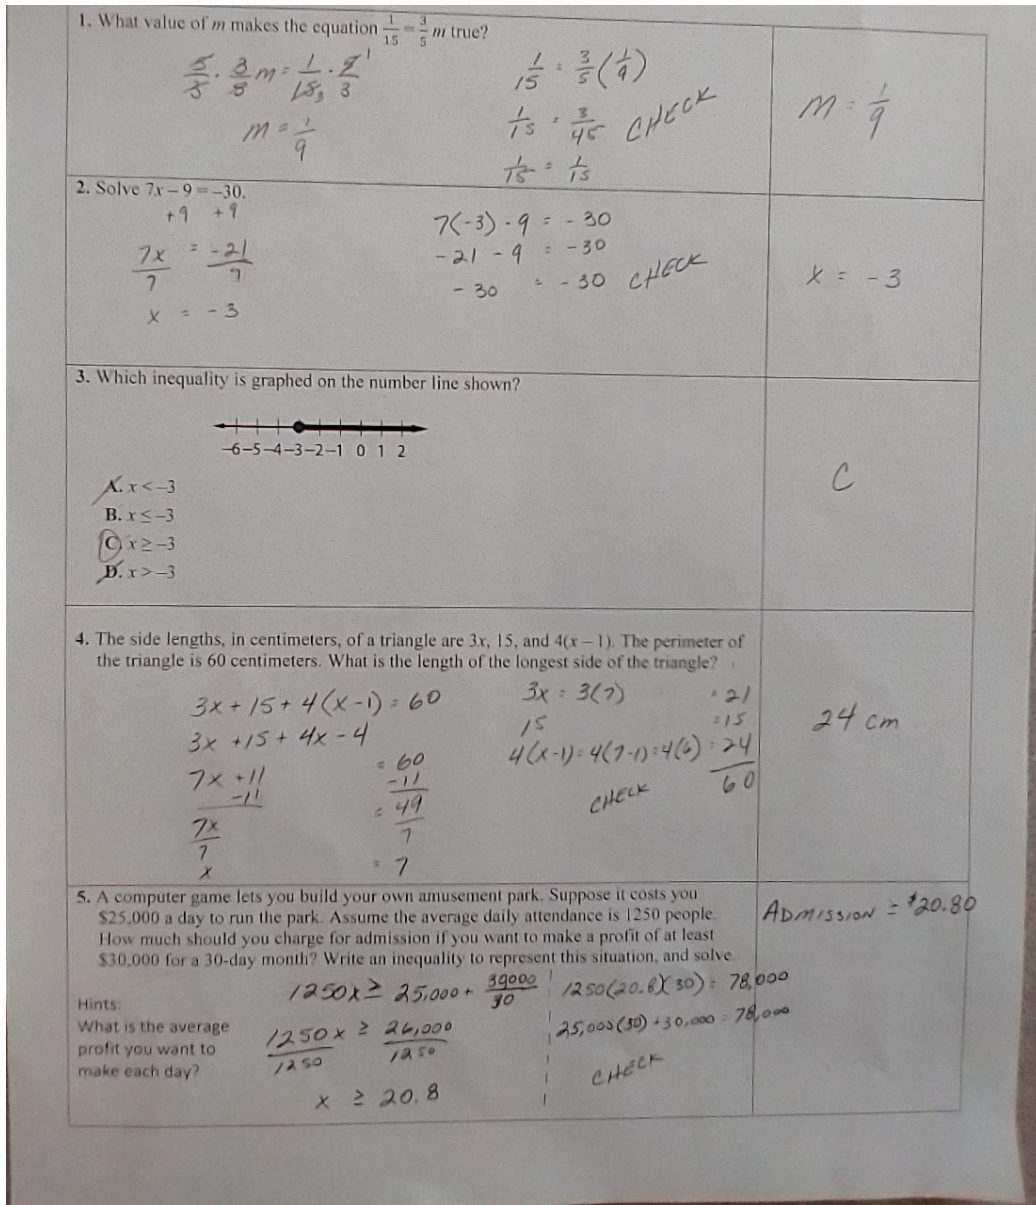 1. What value of m makes the equation 1/15 = 3/5 m true?
5/3 · 3/5 m = 1/15 · 5/3
m = 1/9
1/15 = 3/5 (1/9)
1/15 = 3/45 CHECK
1/15 = 1/15
m = 1/9
2. Solve 7x – 9 = –30.
+9 +9
7x/7 = -21/7
x = -3
7(-3) - 9 = -30
-21 - 9 = -30
-30 = -30 CHECK
x = -3
3. Which inequality is graphed on the number line shown?
–6 –5 –4 –3 –2 –1 0 1 2
A. x < –3
B. x ≤ –3
C. x ≥ –3
D. x > –3
C
4. The side lengths, in centimeters, of a triangle are 3x, 15, and 4(x – 1). The perimeter of
the triangle is 60 centimeters. What is the length of the longest side of the triangle?
3x + 15 + 4(x-1) = 60
3x + 15 + 4x - 4
7x + 11 = 60
-11 -11
7x/7 = 49/7
x = 7
3x = 3(7) = 21
15 = 15
4(x-1) = 4(7-1) = 4(6) = 24
60
CHECK
24 cm
5. A computer game lets you build your own amusement park. Suppose it costs you
$25,000 a day to run the park. Assume the average daily attendance is 1250 people.
How much should you charge for admission if you want to make a profit of at least
$30,000 for a 30-day month? Write an inequality to represent this situation, and solve.
Hints:
What is the average
profit you want to
make each day?
1250x ≥ 25,000 + 30000/30
1250x/1250 ≥ 26,000/1250
x ≥ 20.8
1250(20.8)(30) = 78,000
25,000(30) + 30,000 = 78,000
CHECK
ADMISSION ≥ $20.80